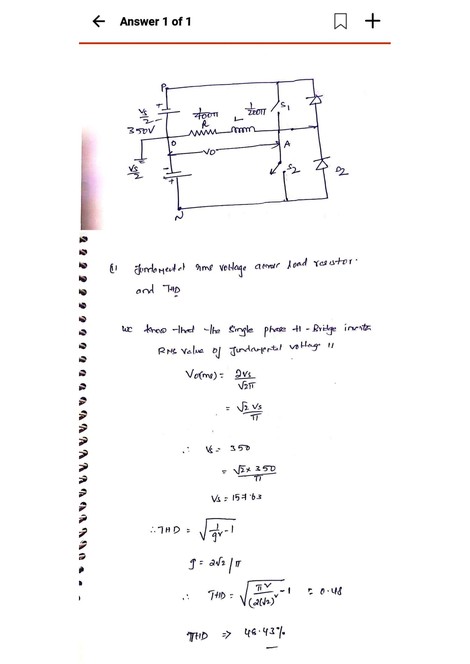 Answer 1 of 1
P
Vs/2
+
-
350V
1/400π
R
L
1/200π
S1
O
VO
A
Vs/2
-
+
S2
D2
N
fundamental rms voltage across load resistor.
and THD
We know that the single phase H-Bridge inverter
RMS value of fundamental voltage is
Vo(rms) = 2Vs/√2π
= √2 Vs/π
∴ Vs = 350
= √2 x 350/π
Vs = 157.63
∴ THD = √(1/g² - 1)
g = 2√2/π
∴ THD = √(π²/(2√2)² - 1) = 0.48
THD ⇒ 48.43%